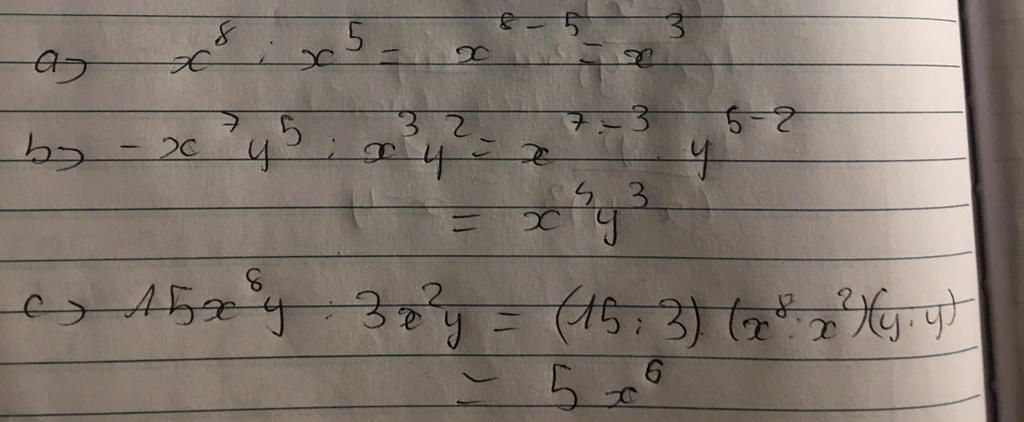 a) x⁸ : x⁵ = x⁸⁻⁵ = x³
b) - x⁷y⁵ : x³y² = x⁷⁻³ . y⁵⁻²
= x⁴y³
c) 15x⁸y : 3x²y = (15 : 3) (x⁸ : x²)(y : y)
= 5x⁶